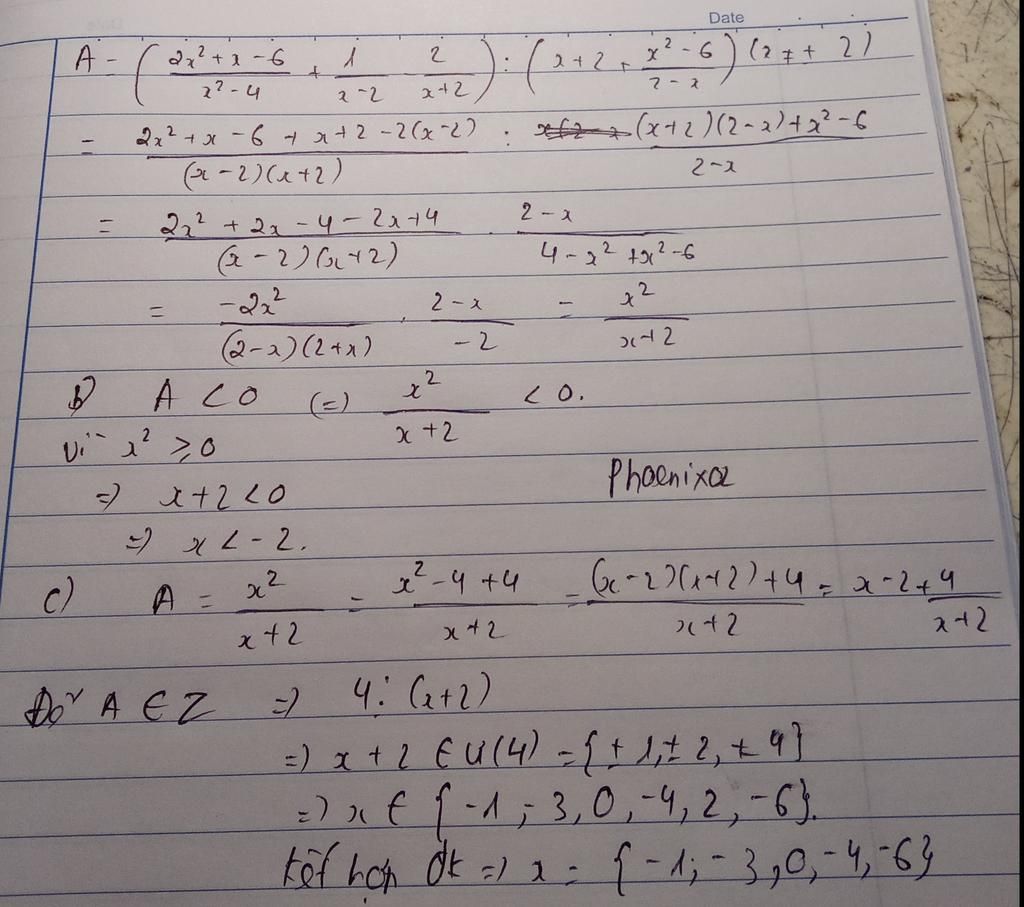 Date
A = (\frac{2x² + x - 6}{x² - 4} + \frac{1}{x - 2} - \frac{2}{x + 2}) : (x + 2 + \frac{x² - 6}{2 - x}) (x ≠ ± 2)
= \frac{2x² + x - 6 + x + 2 - 2(x - 2)}{(x - 2)(x + 2)} : \frac{(x + 2)(2 - x) + x² - 6}{2 - x}
= \frac{2x² + 2x - 4 - 2x + 4}{(x - 2)(x + 2)} . \frac{2 - x}{4 - x² + x² - 6}
= \frac{-2x²}{(2 - x)(2 + x)} . \frac{2 - x}{-2} = \frac{x²}{x + 2}
b) A < 0 (=) \frac{x²}{x + 2} < 0.
Vì x² ≥ 0
=) x + 2 < 0
=) x < -2.
Phoenixa
c) A = \frac{x²}{x + 2} = \frac{x² - 4 + 4}{x + 2} = \frac{(x - 2)(x + 2) + 4}{x + 2} = x - 2 + \frac{4}{x + 2}
Để A ∈ Z =) 4 ⋮ (x + 2)
=) x + 2 ∈ Ư(4) = {± 1, ± 2, ± 4}
=) x ∈ {-1; -3, 0, -4, 2, -6}.
Kết hợp đk =) x = {-1; -3, 0, -4, -6}